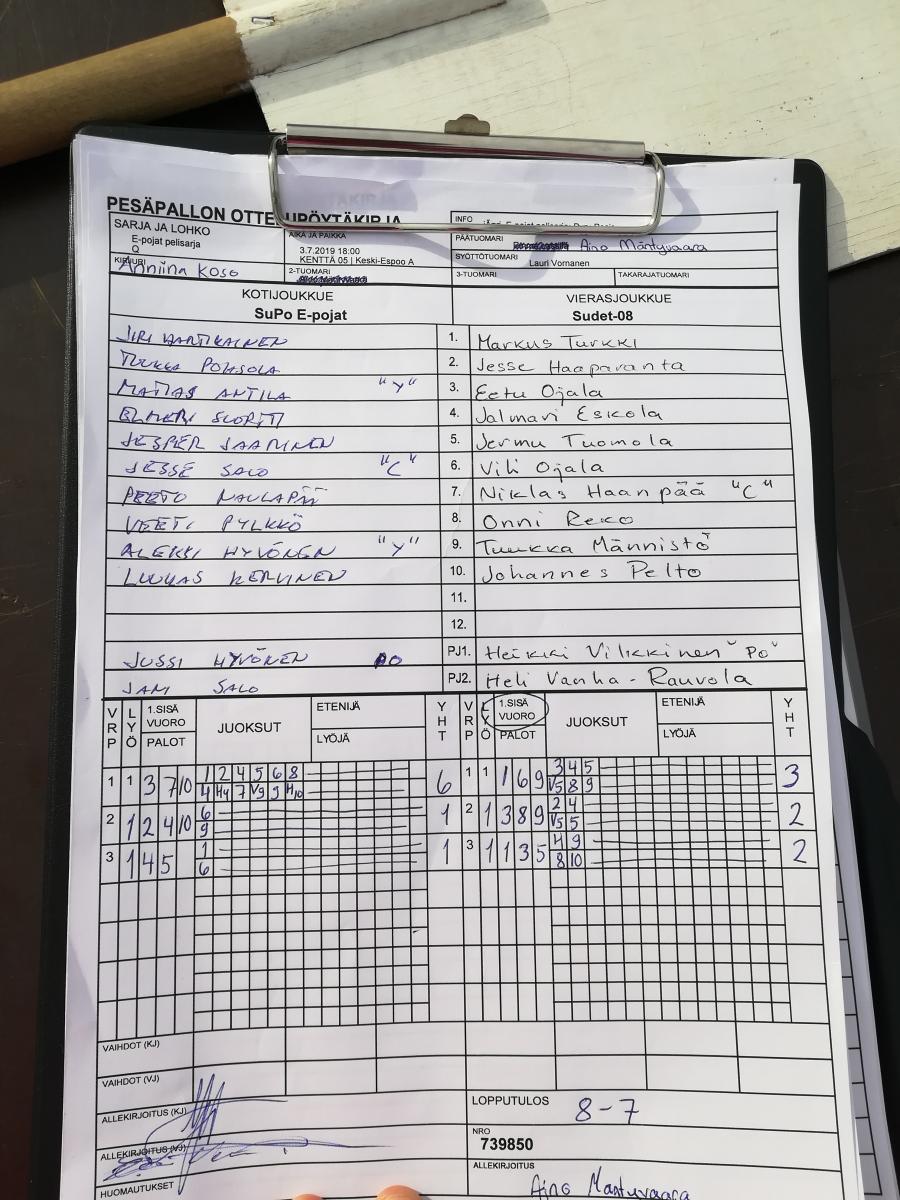 PESÄPALLON OTTELUPÖYTÄKIRJA
SARJA JA LOHKO
E-pojat pelisarja
O
AIKA JA PAIKKA
3.7.2019 18:00
KENTTÄ 05 | Keski-Espoo A
INFO
PÄÄTUOMARI Aino Mäntyvaara
SYÖTTÖTUOMARI Lauri Vornanen
KIRJURI Anniina Koso
2-TUOMARI
3-TUOMARI TAKARAJATUOMARI
KOTIJOUKKUE VIERASJOUKKUE
SuPo E-pojat Sudet-08
JIRI VARTIKAINEN 1. Markus Turkki
TUUKKA POHJOLA 2. Jesse Haaparanta
MATIAS ANTILA "Y" 3. Eetu Ojala
ELMERI SUORTTI 4. Jalmari Eskola
JESPER SAARINEN 5. Jermu Tuomola
JESSE SALO "C" 6. Vili Ojala
PEETU NAULAPÄÄ 7. Niklas Haanpää "C"
VEETI PYLKKÖ 8. Onni Reko
ALEKSI HYVÖNEN "Y" 9. Tuukka Männistö
LUUKAS KERVINEN 10. Johannes Pelto
11.
12.
JUSSI HYVÖNEN PO PJ1. Heikki Vilkkinen "Po"
JANI SALO PJ2. Heli Vanha-Rauvola
VRP LYÖ 1.SISÄ VUORO PALOT JUOKSUT ETENIJÄ LYÖJÄ YHT VRP LYÖ 1.SISÄ VUORO PALOT JUOKSUT ETENIJÄ LYÖJÄ YHT
1 1 3 7 10 1 2 4 5 6 8 6 1 1 1 6 9 3 4 5 3
4 H4 7 V9 9 H10 V5 8 9
2 1 2 4 10 6 1 2 1 3 8 9 2 4 2
9 V5 5
3 1 4 5 1 1 3 1 1 3 5 4 9 2
6 8 10
VAIHDOT (KJ)
VAIHDOT (VJ)
ALLEKIRJOITUS (KJ)
LOPPUTULOS 8-7
ALLEKIRJOITUS (VJ)
NRO
739850
HUOMAUTUKSET
ALLEKIRJOITUS
Aino Mäntyvaara